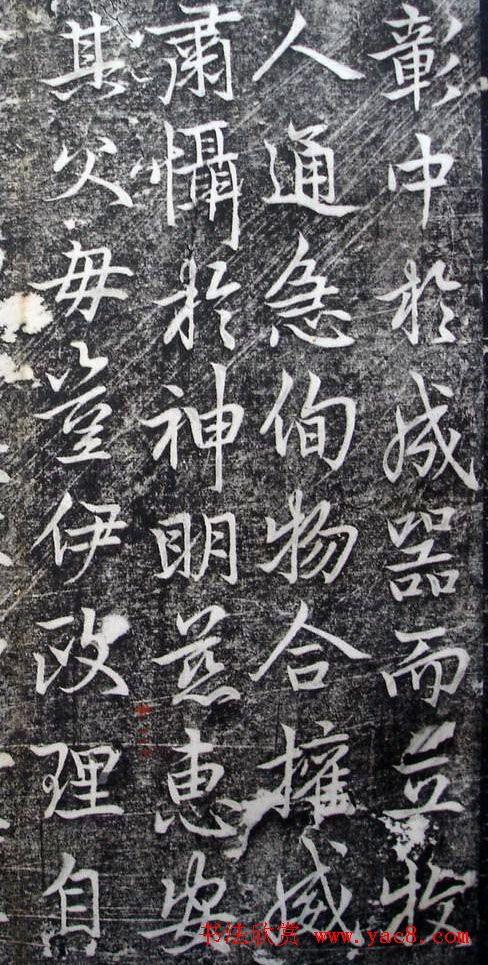 彰中於成器而立
人通急侚物合權威
肅懾於神明慈惠安
其父母豈伊政理自
书法欣赏 www.yac8.com